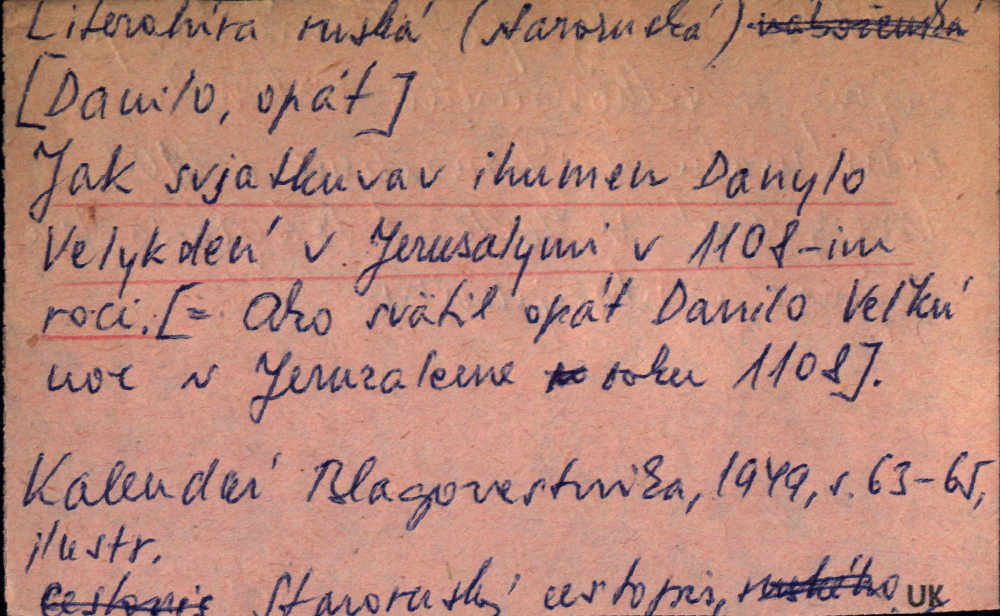 Literatúra ruská (staroruská) náboženská
[Danilo, opát]
Jak svjatkuvav ihumen Danylo
Velykdeń v Jerusalymi v 1108-im
roci. [= Ako svätil opát Danilo Veľkú
noc v Jeruzaleme roku 1108].
Kalendaŕ Blagovestnika, 1949, s. 63-65,
ilustr.
cestopis Staroruský cestopis, ruského UK